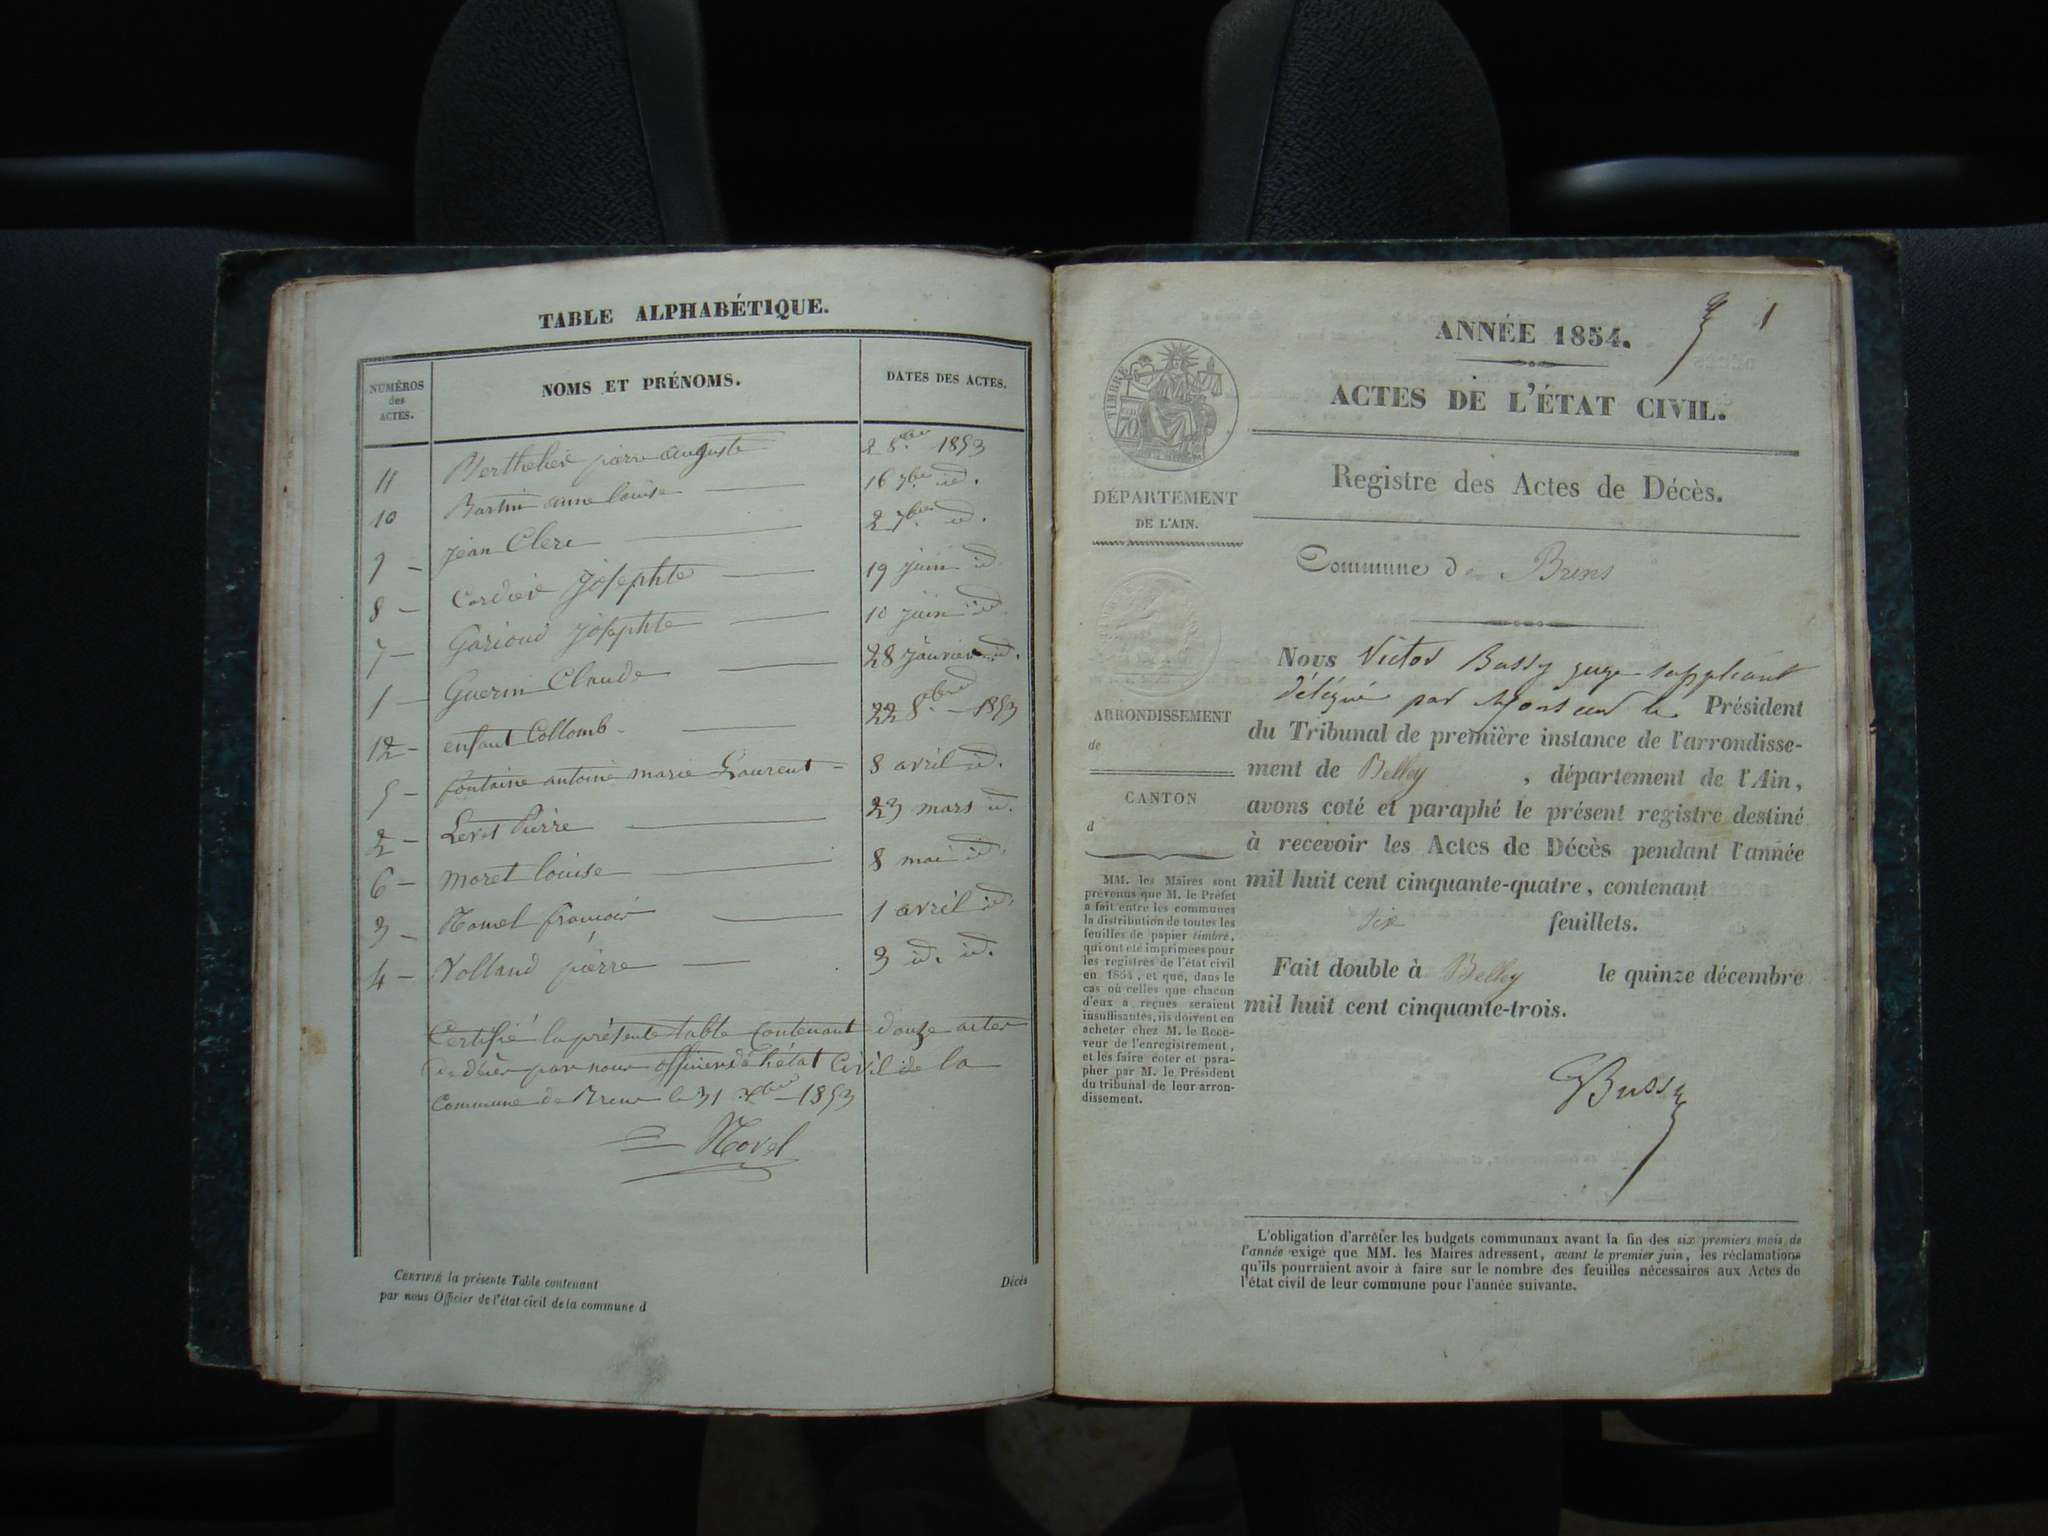 TABLE ALPHABÉTIQUE.
NUMÉROS des ACTES. NOMS ET PRÉNOMS. DATES DES ACTES.
11 Berthelier pierre auguste 2 8bre 1853
10 Bartin anne louise 16 7bre id.
9 jean Clerc 2 7bre id.
8 Cordier Josephte 19 juin id
7 Garioud Josephte 10 juin id
1 Guerin Claude 28 janvier id.
12 enfant Collomb 22 8bre 1853
5 fontaine antoine marie Laurent 8 avril id.
2 Pierre 23 mars id.
6 moret louise 8 mai id.
3 françois 1 avril id
4 Volland pierre 3 id. id.
Certifié la présente table Contenant douze actes
de décès par nous officier de l'état Civil de la
Commune de Brens le 31 Xbre 1853
Novel
CERTIFIÉ la présente Table contenant
par nous Officier de l'état civil de la commune d
Décès
1
ANNÉE 1854.
ACTES DE L'ÉTAT CIVIL.
Registre des Actes de Décès.
Commune de Brens
TIMBRE
70
DÉPARTEMENT
DE L'AIN.
ARRONDISSEMENT
de
CANTON
d
MM. les Maires sont
prévenus que M. le Préfet
a fait entre les communes
la distribution de toutes les
feuilles de papier timbré,
qui ont été imprimées pour
les registres de l'état civil
en 1854, et que, dans le
cas où celles que chacun
d'eux a reçues seraient
insuffisantes, ils doivent en
acheter chez M. le Rece-
veur de l'enregistrement,
et les faire coter et para-
pher par M. le Président
du tribunal de leur arron-
dissement.
Nous Victor Bussy juge suppléant
délégué par Monsieur le Président
du Tribunal de première instance de l'arrondisse-
ment de Belley, département de l'Ain,
avons coté et paraphé le présent registre destiné
à recevoir les Actes de Décès pendant l'année
mil huit cent cinquante-quatre, contenant
six feuillets.
Fait double à Belley le quinze décembre
mil huit cent cinquante-trois.
Bussy
L'obligation d'arrêter les budgets communaux avant la fin des six premiers mois de
l'année exige que MM. les Maires adressent, avant le premier juin, les réclamations
qu'ils pourraient avoir à faire sur le nombre des feuilles nécessaires aux Actes de
l'état civil de leur commune pour l'année suivante.